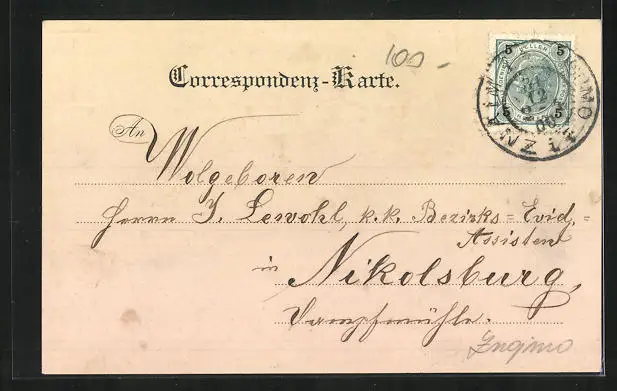 100 -
Correspondenz-Karte.
5 HELLER 5
5 5
An Wolgeboren
Herrn J. Lewohl, k. k. Bezirks= Evid.=
Assistent
in Nikolsburg,
Dampfmühle.
Znojmo